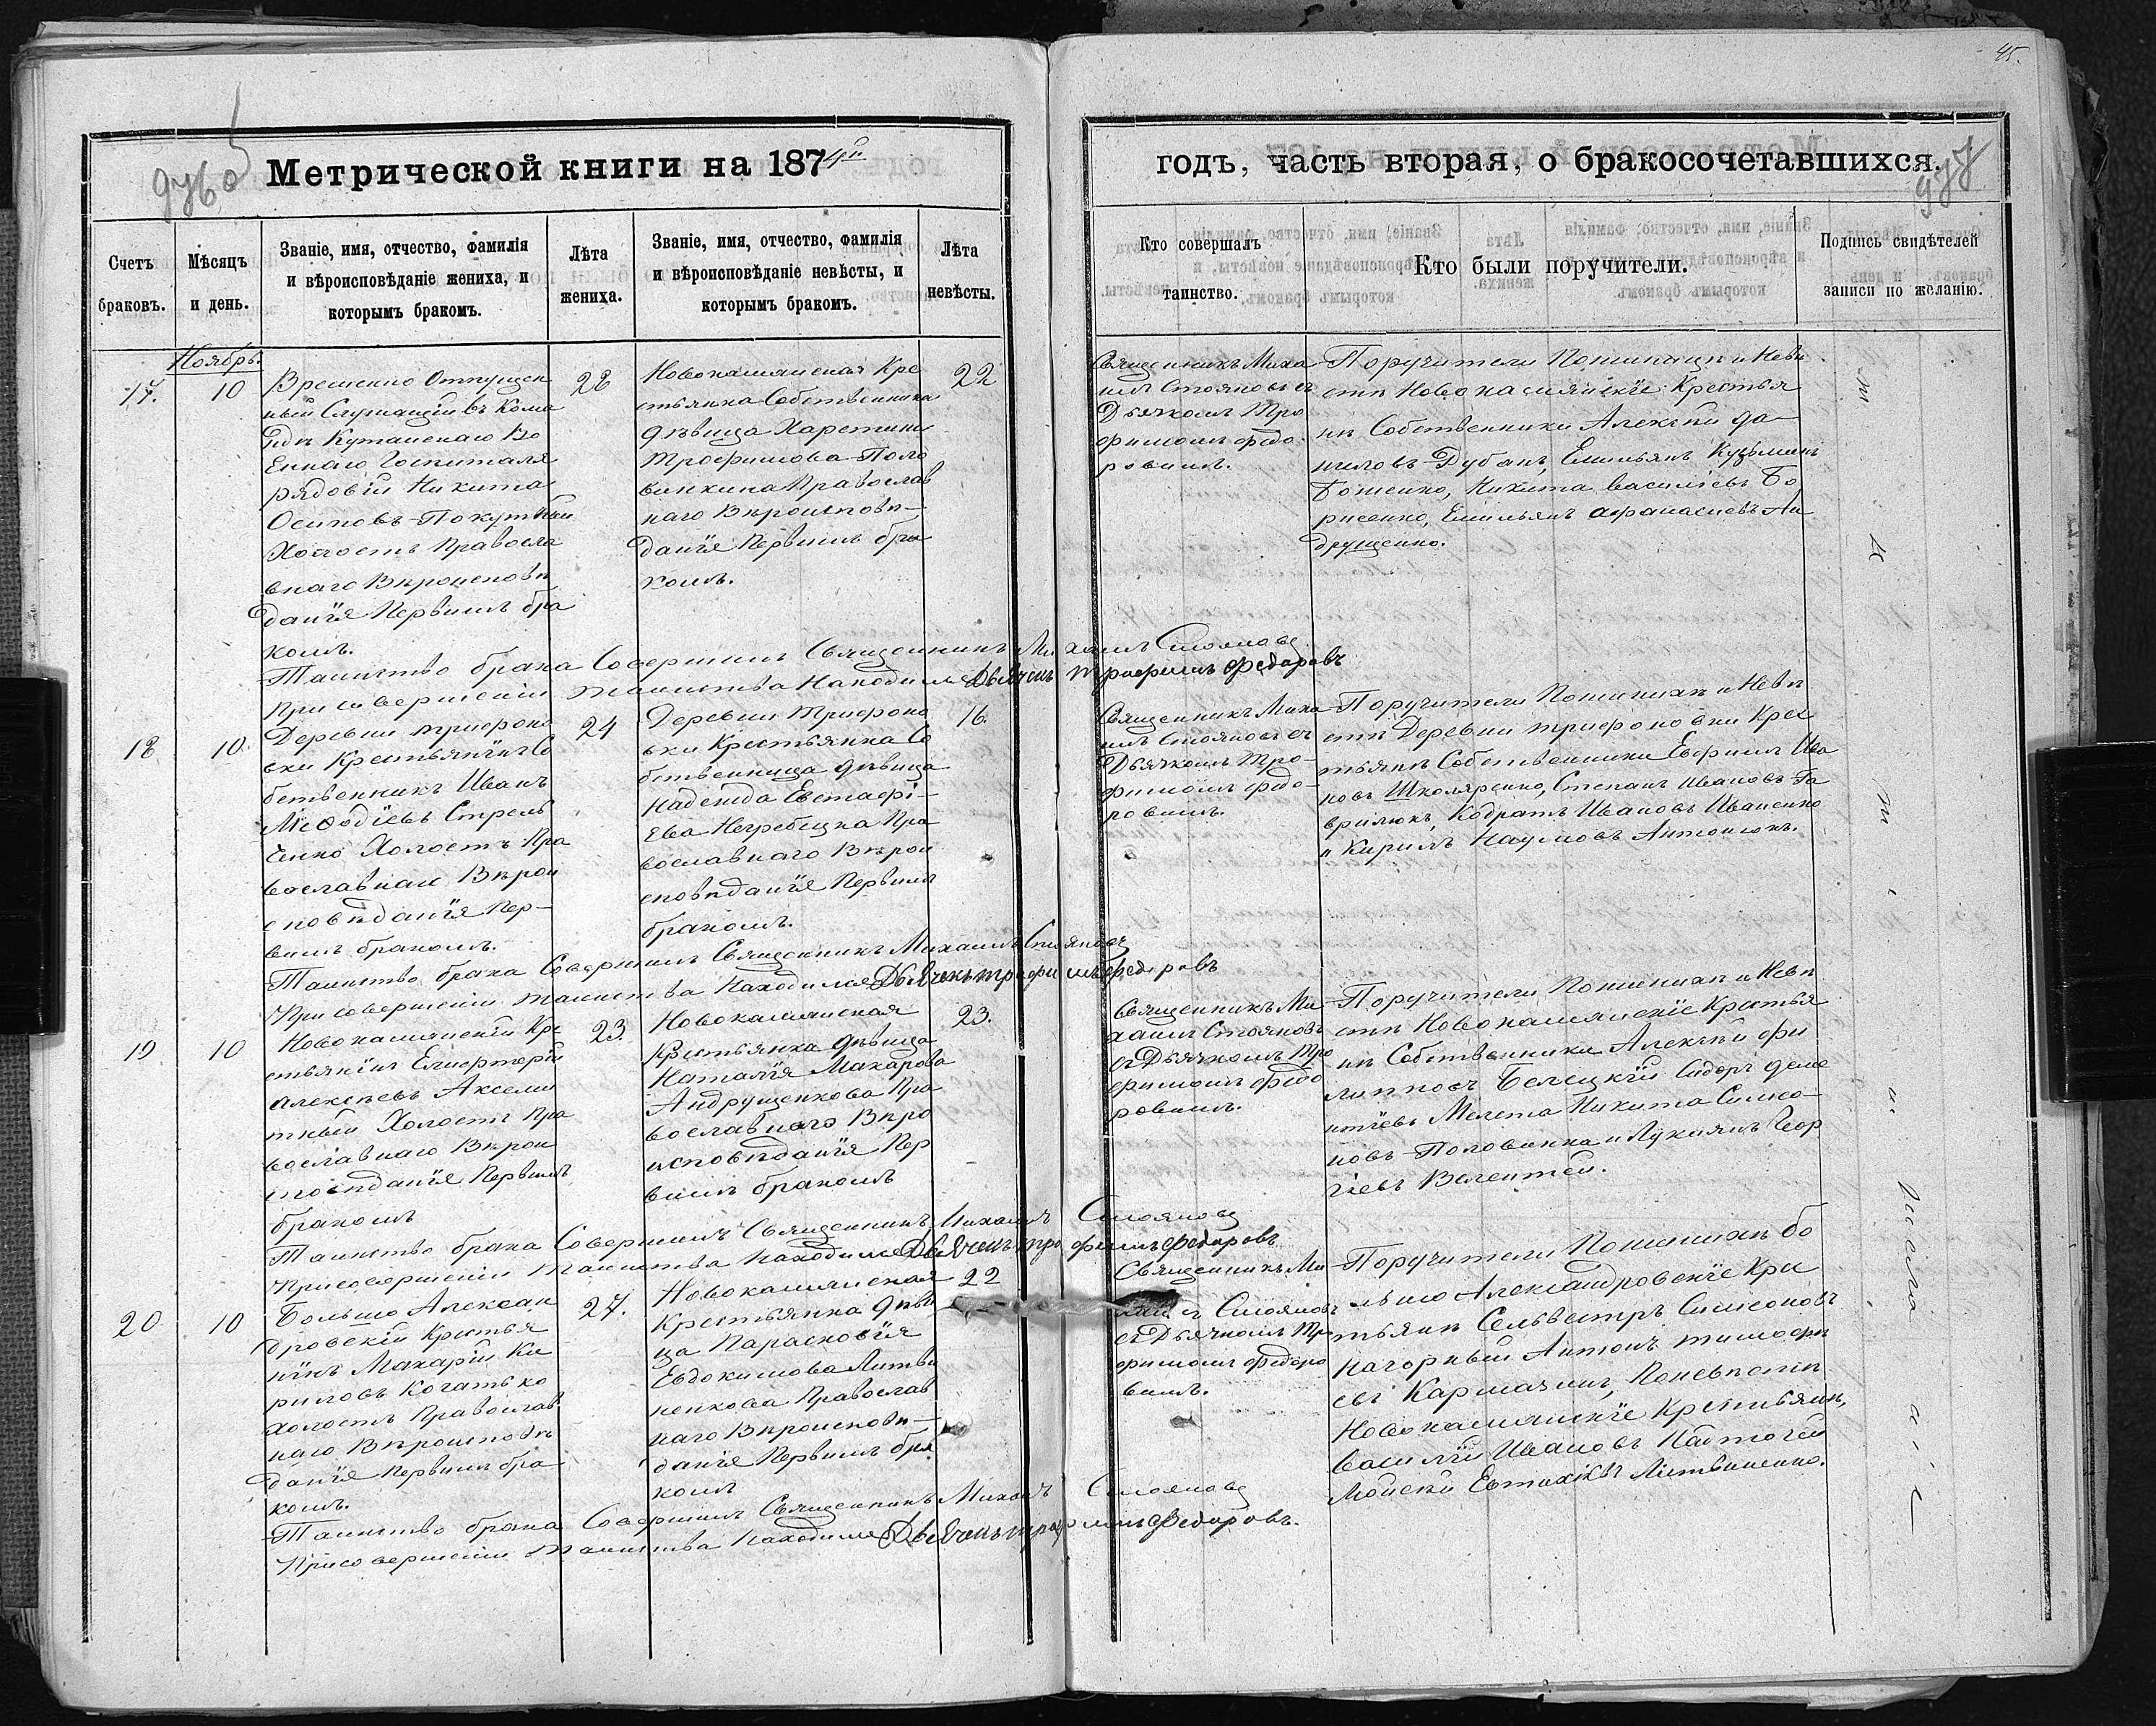 45.
976 об
Метрической книги на 1874й
годъ, часть вторая, о бракосочетавшихся.
977
Счетъ браковъ.
Мѣсяцъ и день.
Званіе, имя, отчество, фамилія
и вѣроисповѣданіе жениха, и
которымъ бракомъ.
Лѣта жениха.
Званіе, имя, отчество, фамилія
и вѣроисповѣданіе невѣсты, и
которымъ бракомъ.
Лѣта невѣсты.
Кто совершалъ
таинство.
Кто были поручители.
Подпись свидѣтелей
записи по желанію.
Ноябрь.
17.
10
Временно Отпущен
ный Служащій въ Кома
ндѣ Кутаискаго Во
Еннаго Госпиталя
рядовій Никита
Осиповъ Покутній
Холостъ Правосла
внаго Вѣроисповѣ
данія Первымъ бра
комъ.
28
Новокаманская Кре
стьянка Собственника
дѣвица Харетина
Трофимова Поло
винкина Православ
наго Вѣроисповѣ-
данія Первымъ бра
комъ.
22
Священникъ Миха
илъ Стояновъ съ
Дьячкомъ Тро
фимомъ Федо
ровымъ.
Поручители По женихѣ и Невѣ
стѣ Новокаманскіе Крестья
нѣ Собственники Алексѣй Да-
ниловъ Дубанъ, Емильянъ Кузьминъ
Боженко, Никита Васильевъ Бо
рисенко, Емильянъ Афанасиевъ Ан
друщенко.
Таинство брака Совершилъ Священникъ Михаилъ Стояновъ
При совершеніи таинства Находился Дьячекъ Трофимъ Федоровъ
18
10.
Деревни Трифоно
вки Крестьянинъ Со
бственникъ Иванъ
Міѳодіевъ Стрель
ченко Холостъ Пра
вославнаго Вѣрои
сповѣданія Пер-
вымъ бракомъ.
24
Деревни Трифоно
вки Крестьянка Со
бственница дѣвица
Надежда Евстафі-
Ева Негребецка Пра
вославнаго Вѣрои
сповѣданія Первымъ
бракомъ.
16.
Священникъ Миха
илъ Стояновъ съ
Дьячкомъ Тро-
фимомъ Федо-
ровымъ.
Поручители По женихѣ и Невѣ
стѣ Деревни Трифоновки Крес
тьянѣ Собственники Евфимъ Ива
новъ Школяренко, Степанъ Ивановъ Га
врилюкъ, Кодратъ Ивановъ Иваненко
и Кирилъ Наумовъ Антонюкъ.
Таинство брака Совершилъ Священникъ Михаилъ Стояновъ
При совершеніи таинства Находился Дьячекъ Трофимъ Федоровъ
19
10
Новокаманскій Кре
стьянинъ Елифторій
Алексѣевъ Аксели
тный Холостъ Пра
вославнаго Вѣрои
сповѣданія Первымъ
бракомъ
23.
Новокаманская
Крестьянка дѣвица
Наталія Макарова
Андрущенкова Пра
вославнаго Вѣро
исповѣданія Пер
вымъ бракомъ
23.
Священникъ Ми
хаилъ Стояновъ
съ Дьячкомъ Тро
фимомъ Федо
ровымъ.
Поручители По женихѣ и Невѣ
стѣ Новокаманскіе Крестья
нѣ Собственники Алексѣй Фи
липповъ Белецкій Сидоръ Деме
нтіевъ Мелета Никита Симео-
новъ Половинка и Лукаянъ Геор
гіевъ Валентей.
Таинство брака Совершилъ Священникъ Михаилъ Стояновъ
При совершеніи таинства Находился Дьячекъ Трофимъ Федоровъ
20
10
Большо Алексан
дровскій Крестья
нинъ Макарій Ки
риловъ Когатько
холостъ Православ
наго Вѣроисповѣ
данія Первымъ бра
комъ.
27.
Новокаманская
Крестьянка дѣви
ца Парасковія
Евдокимова Литви
ненкова Православ
наго Вѣроисповѣ-
данія Первымъ бра
комъ
22
Священникъ Ми
хаилъ Стояновъ
съ Дьячкомъ Тро
фимомъ Федоро
вымъ.
Поручители По женихѣ Бо
льшо Александровскіе Кре
стьянѣ Сельвестръ Симеоновъ
Нагорный Антонъ Тимофѣ
евъ Кармазинъ, По невѣстѣ
Новокаманскіе Крестьянѣ,
Василій Ивановъ Надточей
Мойсей Евтихіевъ Литвиненко.
Таинство брака Совершилъ Священникъ Михаилъ Стояновъ
При совершеніи таинства Находился Дьячекъ Трофимъ Федоровъ.